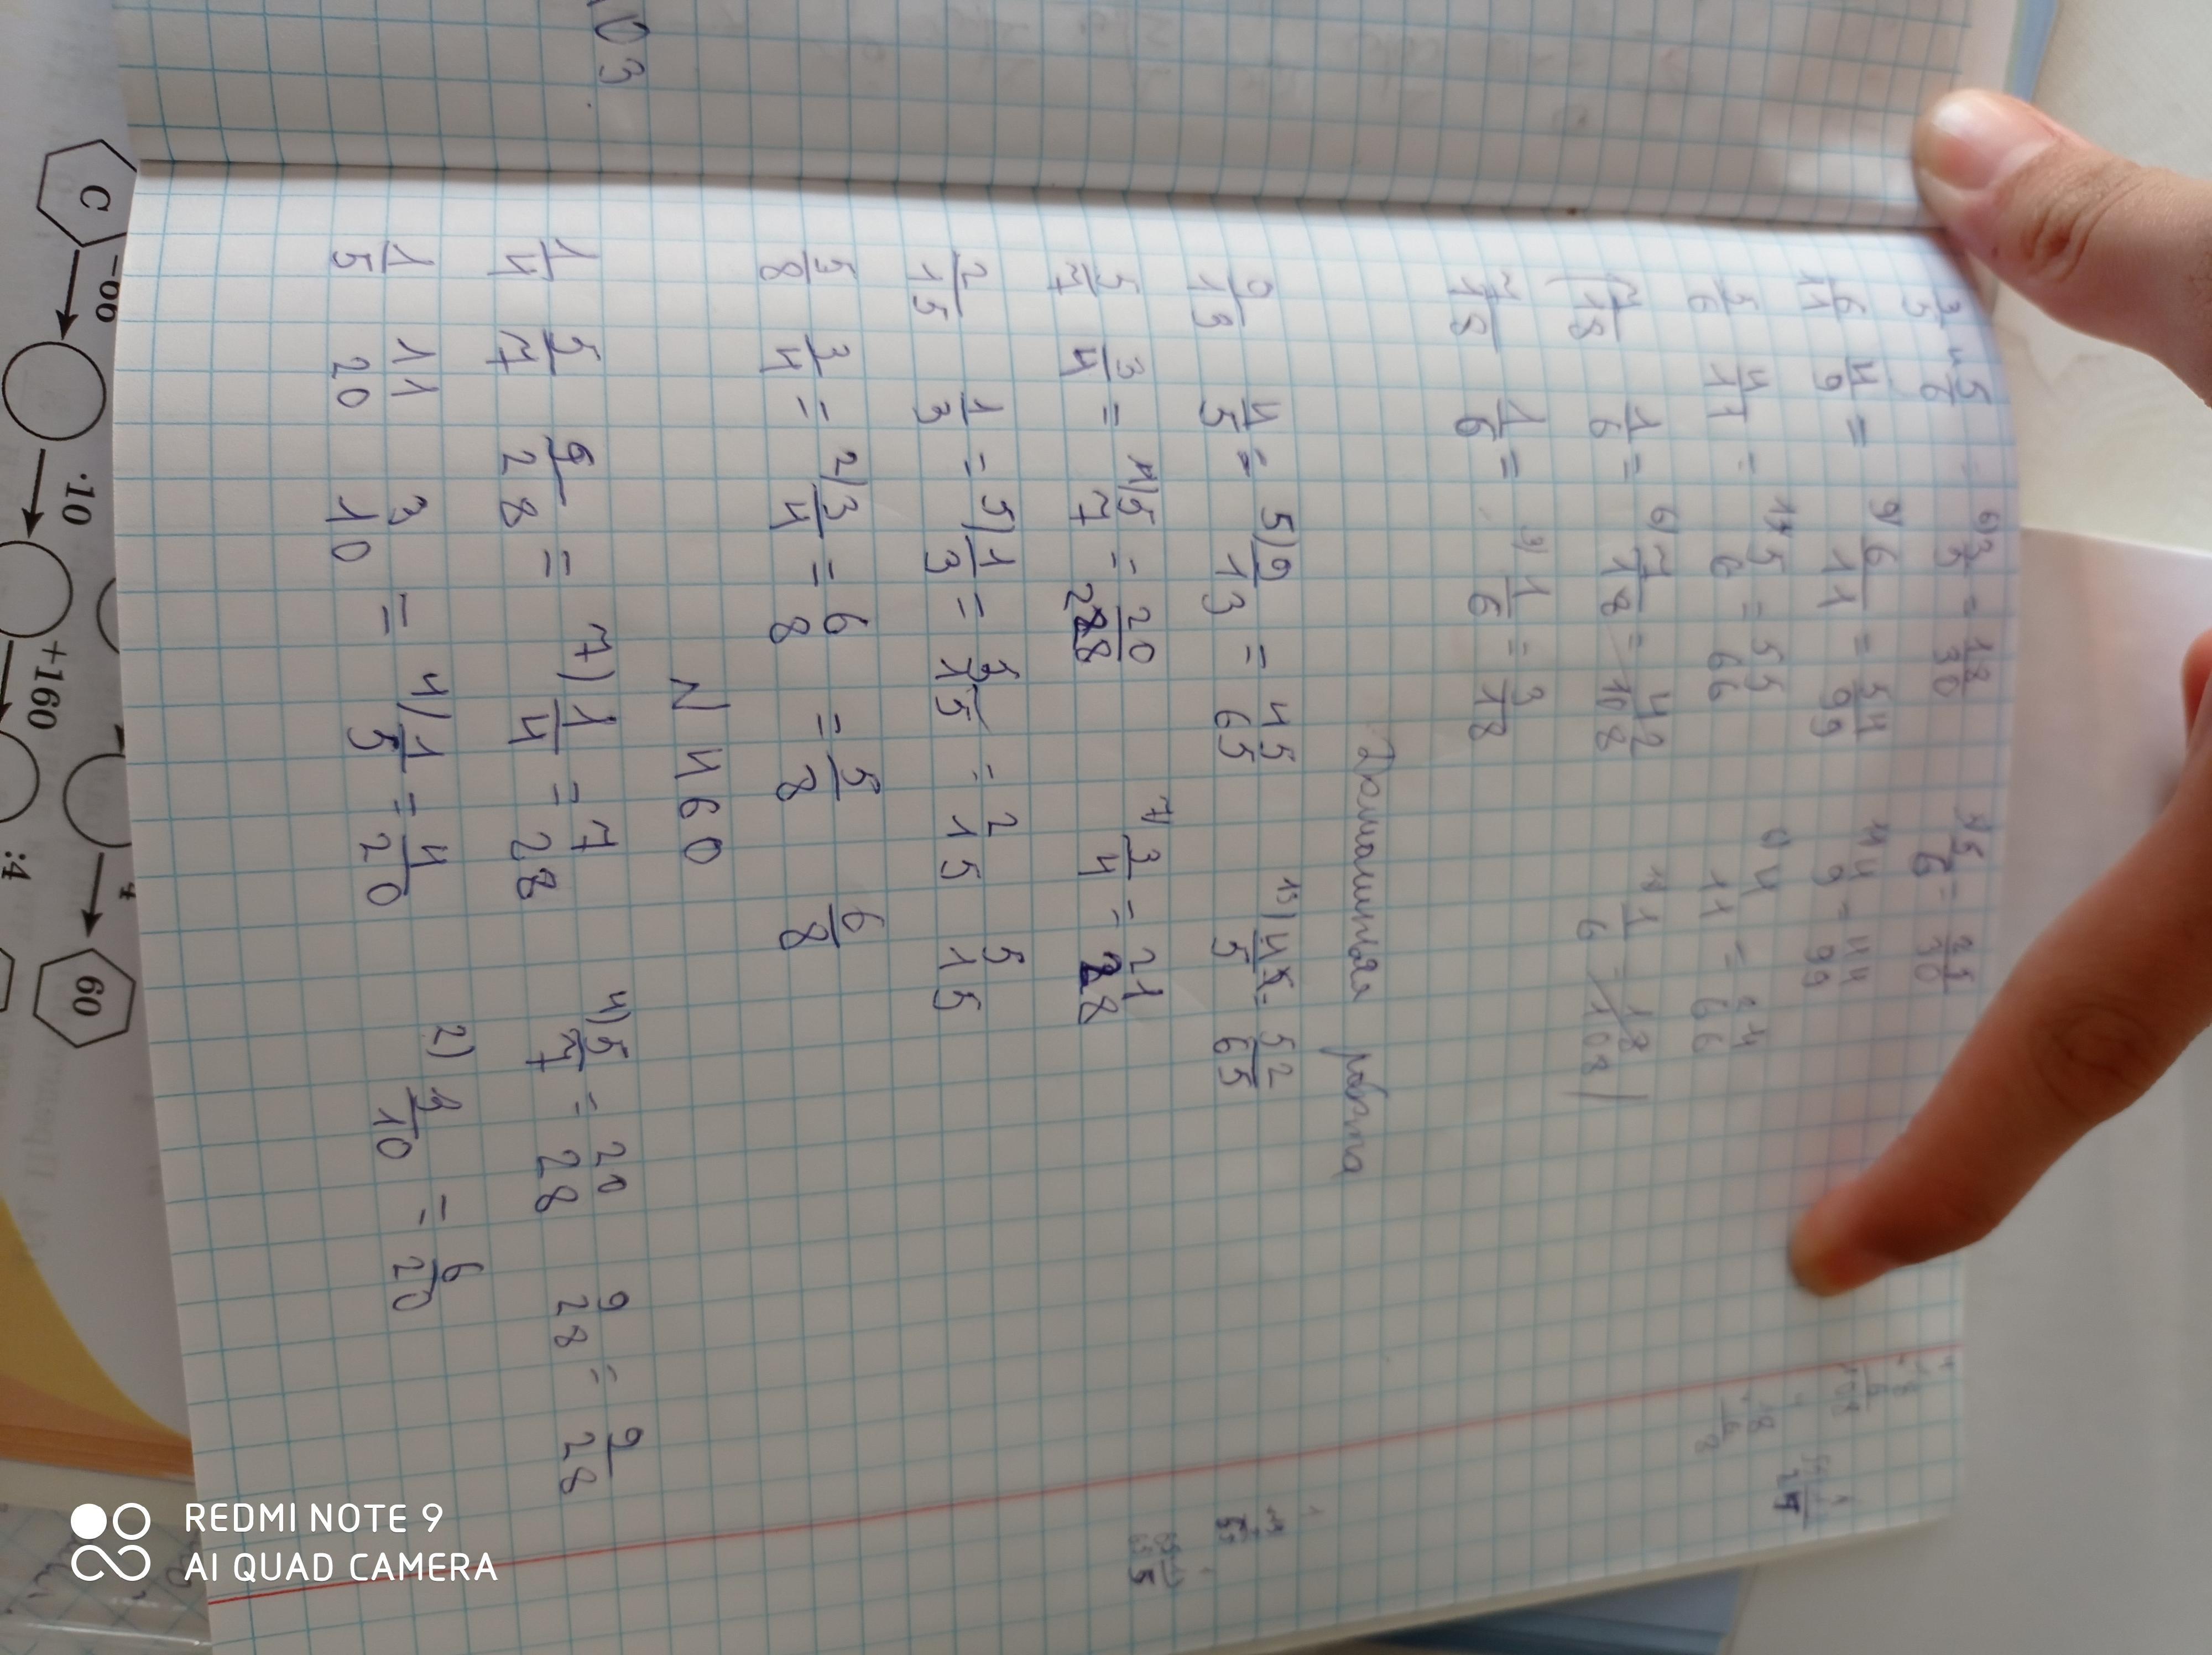 3/5 и 5/6 = 6) 3/5 = 18/30 5) 5/6 = 25/30
6/11 4/9 = 9) 6/11 = 54/99 11) 4/9 = 44/99
5/6 4/11 = 11) 5/6 = 55/66 6) 4/11 = 24/66
(7/18 1/6 = 6) 7/18 = 42/108 18) 1/6 = 18/108)
7/18 1/6 = 3) 1/6 = 3/18
Домашняя работа
9/13 4/5 = 5) 9/13 = 45/65 13) 4/5 = 52/65
5/7 3/4 = 4) 5/7 = 20/28 7) 3/4 = 21/28
2/15 1/3 = 5) 1/3 = 5/15 = 2/15 5/15
5/8 3/4 = 2) 3/4 = 6/8 = 5/8 6/8
N 460
1/4 5/7 9/28 = 7) 1/4 = 7/28 4) 5/7 = 20/28 9/28 = 9/28
1/5 11/20 3/10 = 4) 1/5 = 4/20 2) 3/10 = 6/20
03.
C
-66
·10
+160
:4
60
REDMI NOTE 9
AI QUAD CAMERA